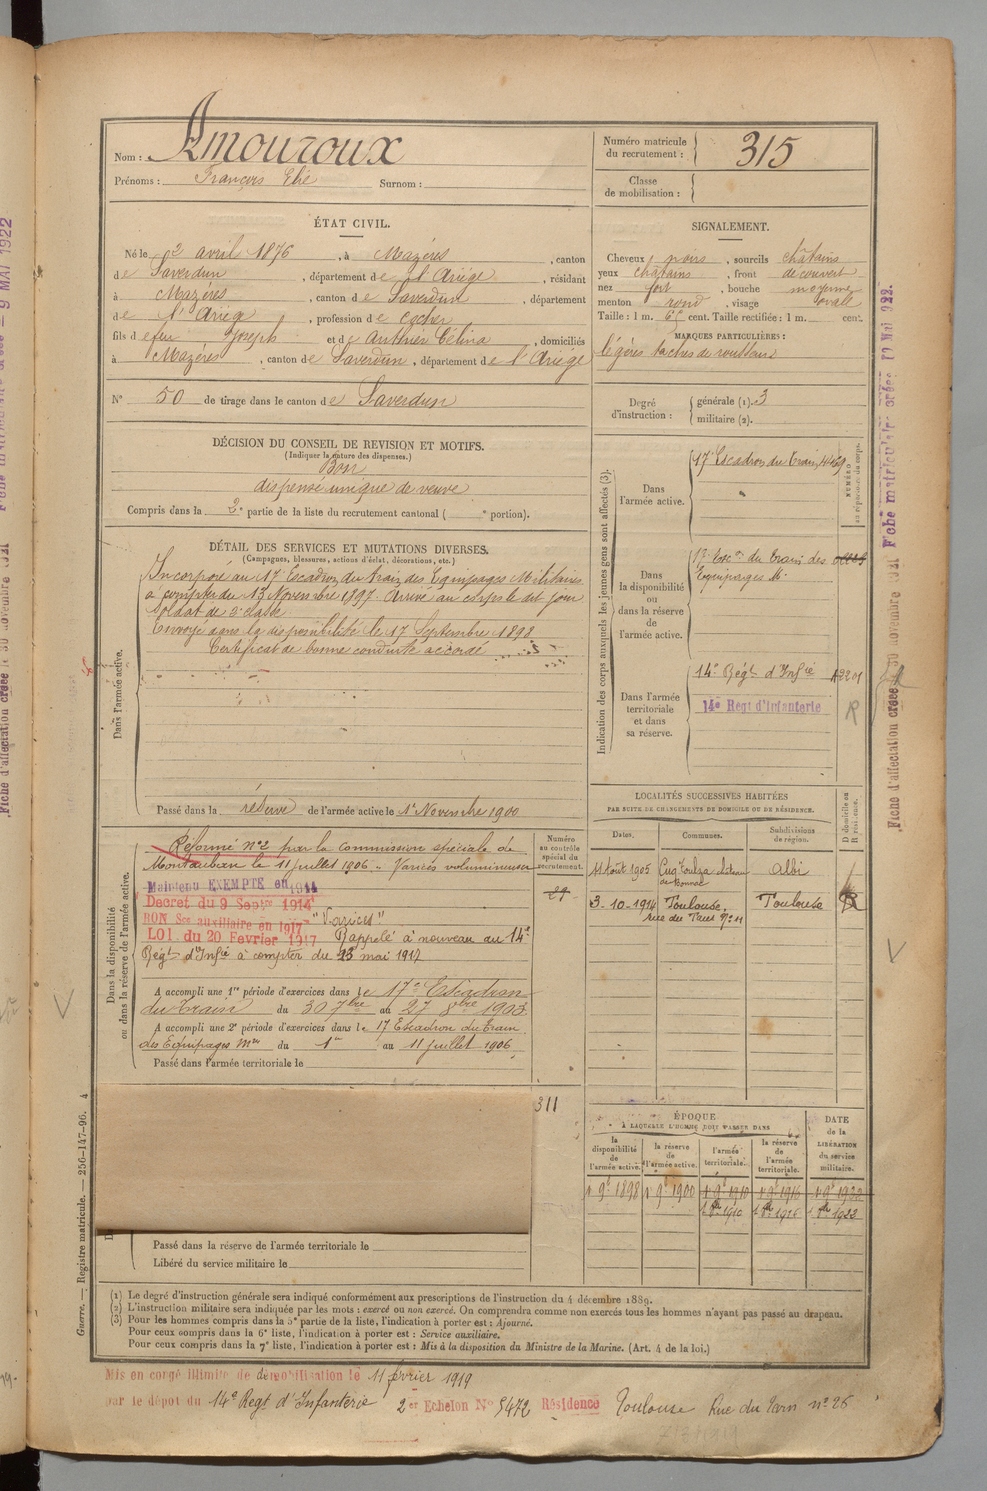 Nom : Amouroux
Prénoms : François Elie Surnom :
Numéro matricule du recrutement : 315
Classe de mobilisation :
ÉTAT CIVIL.
Né le 2 avril 1876, à Mazères, canton
de Saverdun, département de l'Ariège, résidant
à Mazères, canton de Saverdun, département
de l'Ariège, profession de Cocher
fils de feu Joseph et de Authier Célina, domiciliés
à Mazères, canton de Saverdun, département de l'Ariège
N° 50 de tirage dans le canton de Saverdun
SIGNALEMENT.
Cheveux noirs, sourcils châtains
yeux châtains, front découvert
nez fort, bouche moyenne
menton rond, visage ovale
Taille : 1 m. 65 cent. Taille rectifiée : 1 m. cent.
MARQUES PARTICULIÈRES :
légères taches de rousseurs
Degré d'instruction : générale (1). 3
militaire (2).
DÉCISION DU CONSEIL DE REVISION ET MOTIFS.
(Indiquer la nature des dispenses.)
Bon
dispensé unique de veuve
Compris dans la 2e partie de la liste du recrutement cantonal ( e portion).
DÉTAIL DES SERVICES ET MUTATIONS DIVERSES.
(Campagnes, blessures, actions d'éclat, décorations, etc.)
Dans l'armée active.
Incorporé au 17e Escadron du train des Equipages Militaires
à compter du 13 Novembre 1897. Arrivé au corps le dit jour
Soldat de 2e classe
Envoyé dans la disponibilité le 17 Septembre 1898
Certificat de bonne conduite accordé
Passé dans la réserve de l'armée active le 1er Novembre 1900
Indication des corps auxquels les jeunes gens sont affectés (3).
NUMÉRO au répertoire du corps.
Dans l'armée active.
17e Escadron du Train
Dans la disponibilité ou dans la réserve de l'armée active.
du Train des
Equipages M.
Dans l'armée territoriale et dans sa réserve.
14e Régt d'Infie A2201
14e Regt d'Infanterie
R
LOCALITÉS SUCCESSIVES HABITÉES
PAR SUITE DE CHANGEMENTS DE DOMICILE OU DE RÉSIDENCE.
Dates. Communes. Subdivisions de région. D domicile ou R résidence.
11 Août 1905 Cuq Toulza château de Bonnac Albi
3-10-1914 Toulouse, rue du Taur n° 11 Toulouse R
Dans la disponibilité ou dans la réserve de l'armée active.
Numéro au contrôle spécial du recrutement.
29
Réformé n°2 par la commission spéciale de
Montauban le 11 juillet 1906. Varices volumineuses
Maintenu EXEMPTÉ en 1914
Decret du 9 Septre 1914
BON Sce auxiliaire en 1917 "Varices"
LOI du 20 Fevrier 1917 Rappelé à nouveau au 14e
Régt d'Infie à compter du 23 mai 1917
A accompli une 1re période d'exercices dans le 17e Escadron
du Train du 30 7bre au 27 8bre 1903
A accompli une 2e période d'exercices dans le 17 Escadron du Train
des Equipages Mres du 1er au 11 juillet 1906
Passé dans l'armée territoriale le
311
Passé dans la réserve de l'armée territoriale le
Libéré du service militaire le
ÉPOQUE
À LAQUELLE L'HOMME DOIT PASSER DANS
la disponibilité de l'armée active. la réserve de l'armée active. l'armée territoriale. la réserve de l'armée territoriale.
DATE de la LIBÉRATION du service militaire.
1 9e 1898 1 9e 1900 1 9e 1910 1 9e 1916 1 9e 1922
(1) Le degré d'instruction générale sera indiqué conformément aux prescriptions de l'instruction du 4 décembre 1889.
(2) L'instruction militaire sera indiquée par les mots : exercé ou non exercé. On comprendra comme non exercés tous les hommes n'ayant pas passé au drapeau.
(3) Pour les hommes compris dans la 5e partie de la liste, l'indication à porter est : Ajourné.
Pour ceux compris dans la 6e liste, l'indication à porter est : Service auxiliaire.
Pour ceux compris dans la 7e liste, l'indication à porter est : Mis à la disposition du Ministre de la Marine. (Art. 4 de la loi.)
Mis en congé illimité de démobilisation le 11 février 1919
par le dépot du 14e Regt d'Infanterie 2er Echelon N° 5472 Résidence Toulouse Rue du Taur n° 26
Guerre. — Registre matricule. — 256-147-96. 4
Fiche d'affectation créée 30 novembre 1921 Fiche matriculaire créée 19 MAI 1922.
9 MAI 1922